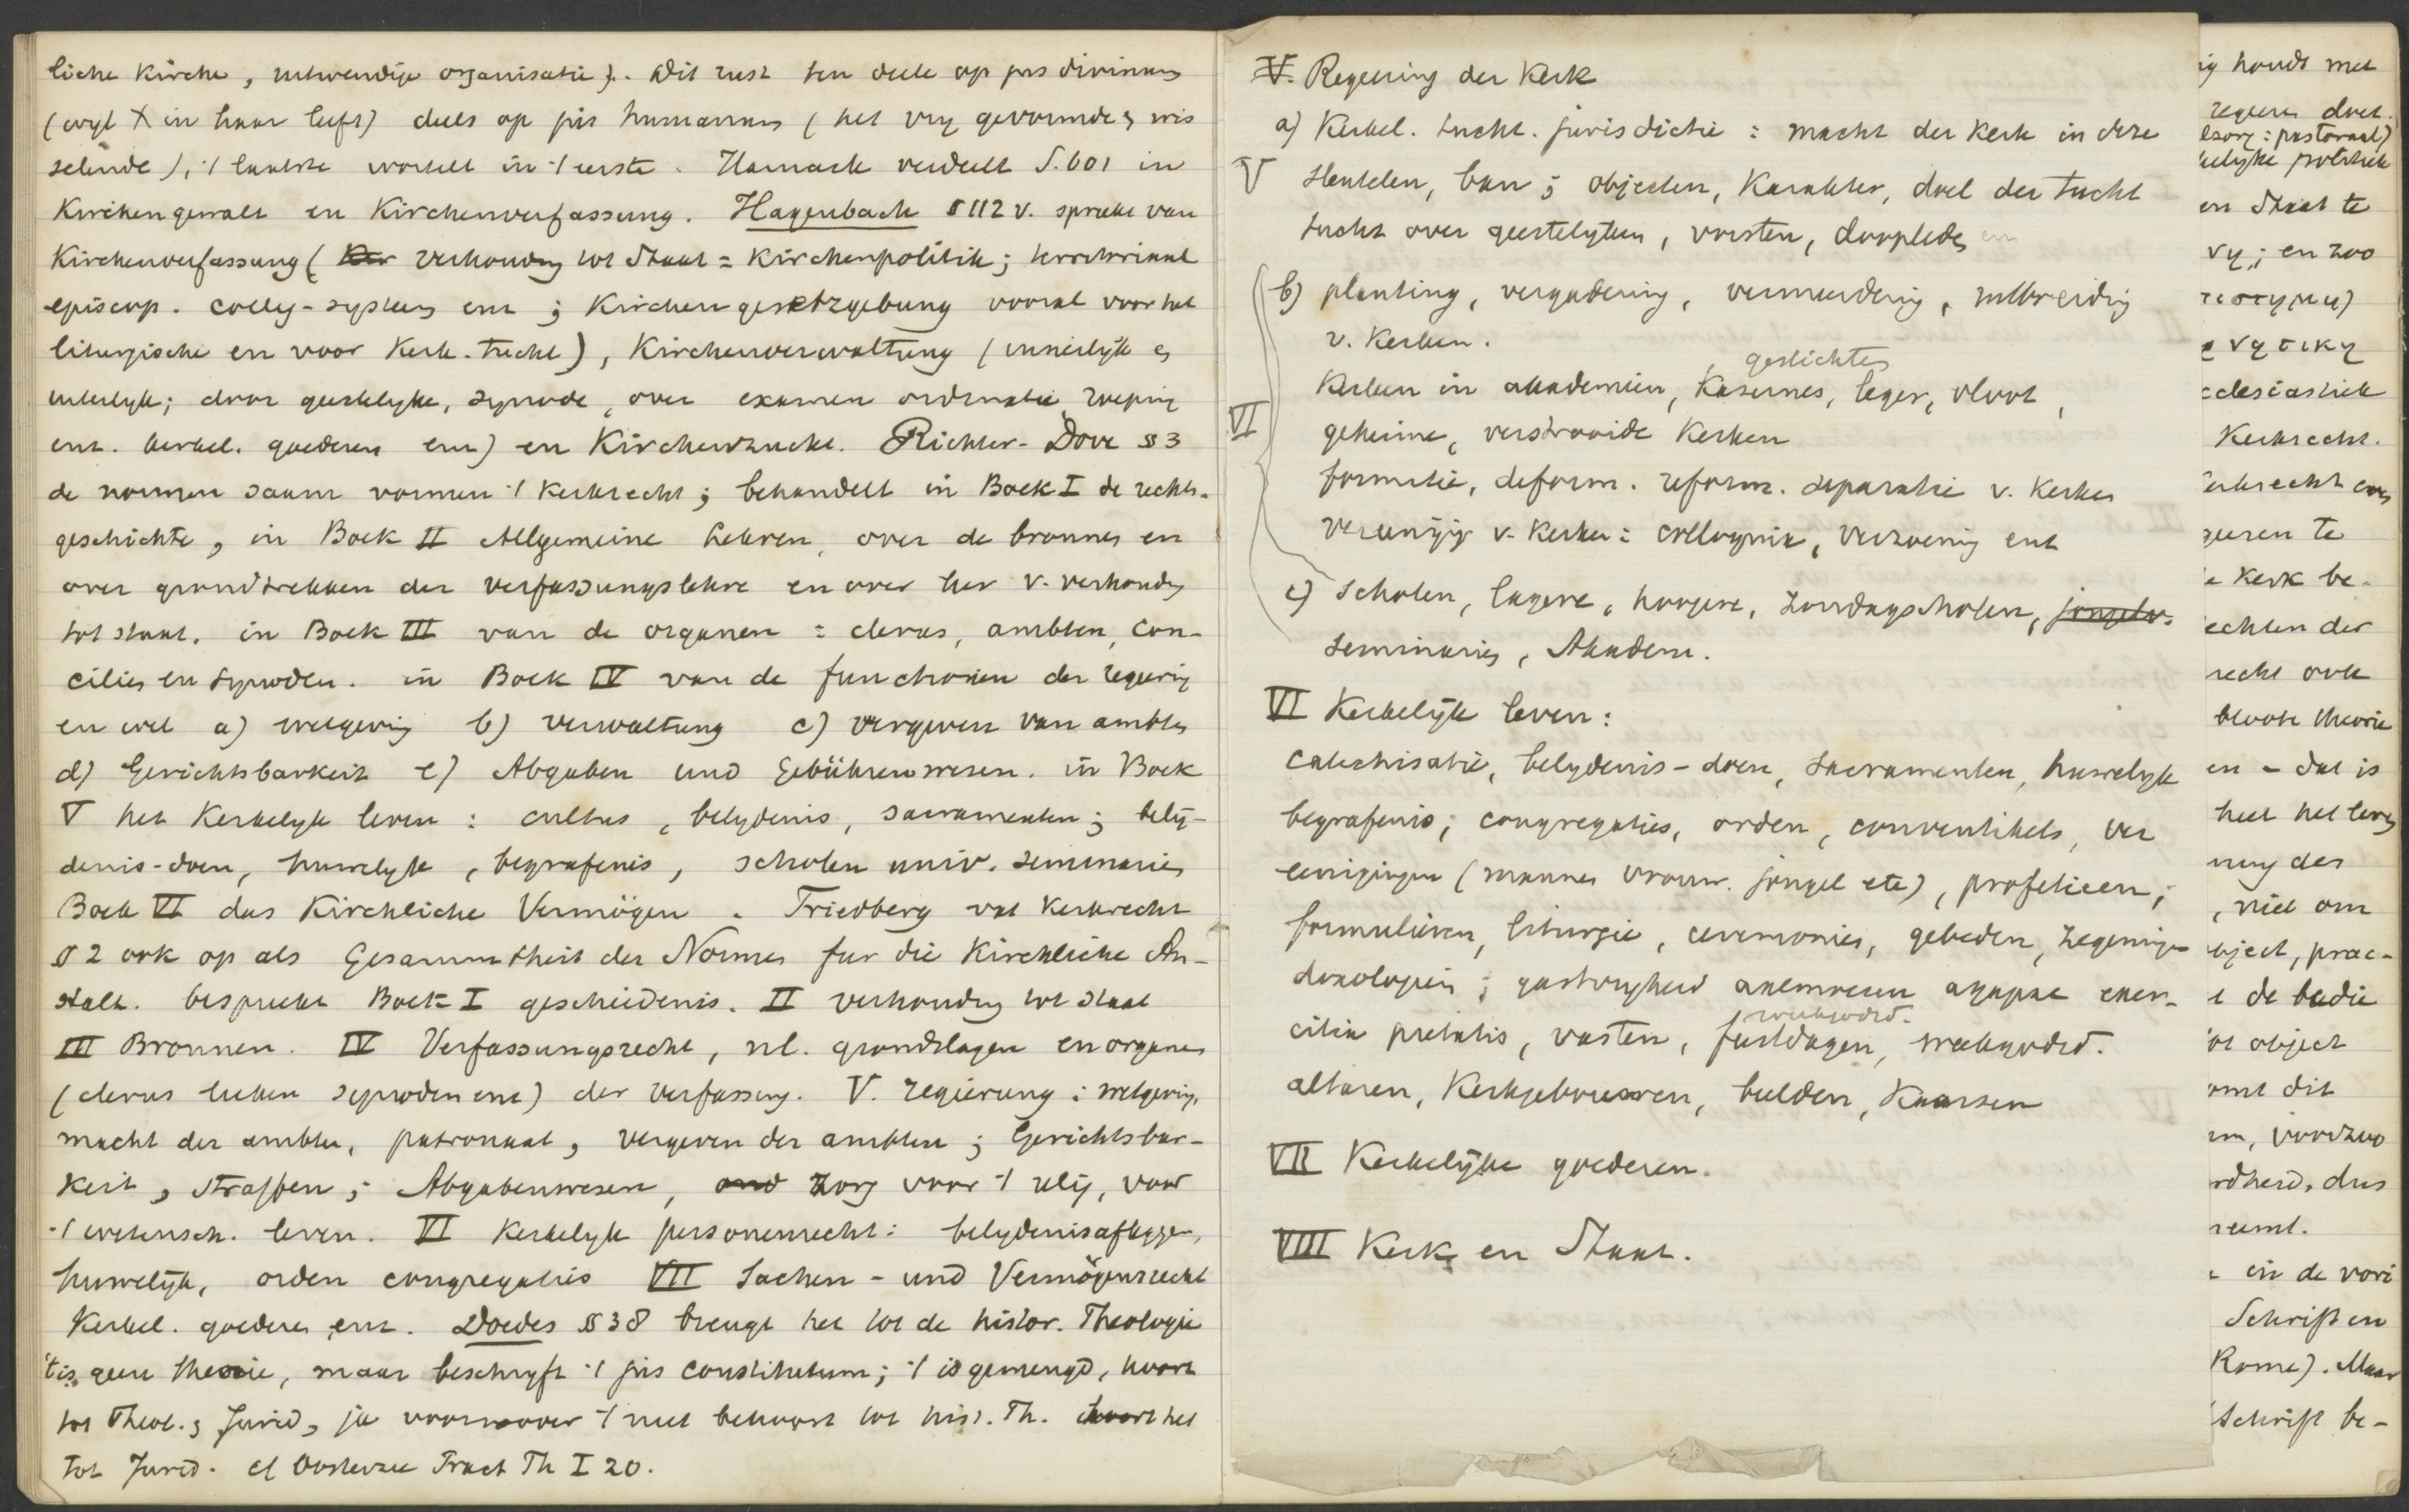 liche Kirche, uitwendige organisatie). Dit rust ten deele op jus divinum
(wijl X in haar leeft) deels op jus humanum (het vrij gevormde, wis
selende), 't laatste wortelt in 't eerste. Harnack verdeelt S. 601 in
Kirchengewalt en Kirchenverfassung. Hagenbach § 112 v. spreekt van
Kirchenverfassung ( verhouding tot Staat = Kirchenpolitik; territoriaal
episcop. colleg-systeem enz; Kirchengesetzgebung vooral voor het
liturgische en voor Kerk. tucht), Kirchenverwaltung (innerlijk en
uiterlijk; door geestelijke, synode, over examen ordinatie roeping
enz. kerkel. goederen enz) en Kirchenzucht. Richter-Dove § 3
de normen saam vormen 't Kerkrecht; behandelt in Boek I de rechts-
geschichte, in Boek II Allgemeine Lehren, over de bronnen en
over grondtrekken der Verfassungslehre en over her v. verhoudg
tot staat. in Boek III van de organen = clerus, ambten, con-
cilies en synoden. in Boek IV van de functionen der regering
en wel a) wetgeving b) verwaltung c) vergeven van ambten
d) Gerichtsbarkeit e) Abgaben und Gebührenwesen. in Boek
V het Kerkelijk leven: cultus, belijdenis, sacramenten; belij-
denis-doen, huwelijk, begrafenis, scholen univ. seminaries
Boek VI das Kirchliche Vermögen. Friedberg vat Kerkrecht
§ 2 ook op als Gesammtheit der Normen fur die Kirchliche An-
stalt. bespreekt Boek I geschiedenis. II verhouding tot staat
III Bronnen. IV Verfassungsrecht, nl. grondslagen en organen
(clerus leeken synoden enz) der Verfassung. V. regierung: wetgeving,
macht der ambten, patronaat, vergeven der ambten; Gerichtsbar-
keit, straffen; Abgabenwesen, and zorg voor 't relig, voor
't wetensch. leven. VI Kerkelijk personenrecht: belijdenisafleggen,
huwelijk, orden congregaties VII Sachen- und Vermögensrecht
Kerkel. goederen enz. Doedes § 38 brengt het tot de histor. Theologie
't is geen theorie, maar beschrijft 't jus constitutum; 't is gemengd, hoort
tot Theol. en Jurid, ja voorzoover 't niet behoort tot hist. Th. hoort het
tot Jurid. cf Oosterzee Pract Th I 20.
V. Regeering der Kerk
a) Kerkel. tucht. jurisdictie: macht der Kerk in deze
V sleutelen, ban; objecten, Karakter, doel der tucht
tucht over geestelijken, vorsten, doopleden
b) planting, vergadering, vermeerdering, uitbreiding
v. Kerken.
gestichten
Kerken in akademiën, Kasernes, leger, vloot,
VI geheime, verstrooide Kerken
formatie, deform. reform. separatie v. Kerken
vereeniging v. Kerken: colloquia, verzoening enz
c) Scholen, lagere, hoogere, Zondagscholen, jongelw.
Seminaries, Akadem.
VI Kerkelijk leven:
Catechisatie, belijdenis-doen, Sacramenten, huwelijk
begrafenis; congregaties, orden, conventikels, ver
eenigingen (mannen vrouw. jongel etc), profetieen;
formulieren, liturgie, ceremonies, gebeden, zegeningen
doxologieën; gastvrijheid agapae exer-
weekgodsd.
citia pietatis, vasten, feestdagen, weekgodsd.
altaren, Kerkgebouwen, beelden, Kaarsen
VII Kerkelijke goederen.
VIII Kerk en Staat.
ig houdt met
regeeren doet.
lzorg: pastoraal)
kelijke politiek
en Staat te
vrij; en zoo
cclesiastiek
Kerkrecht.
kerkrecht
geeren te
e Kerk be-
echten der
recht ook
bloote theorie
en - dat is
heel het leven
ning der
, niet om
bject, prac-
e de bedie
ot object
omt dit
em, voorzoo
rdheid, dus
neemt.
e in de vori
Schrift en
Rome). Maar
Schrift be-